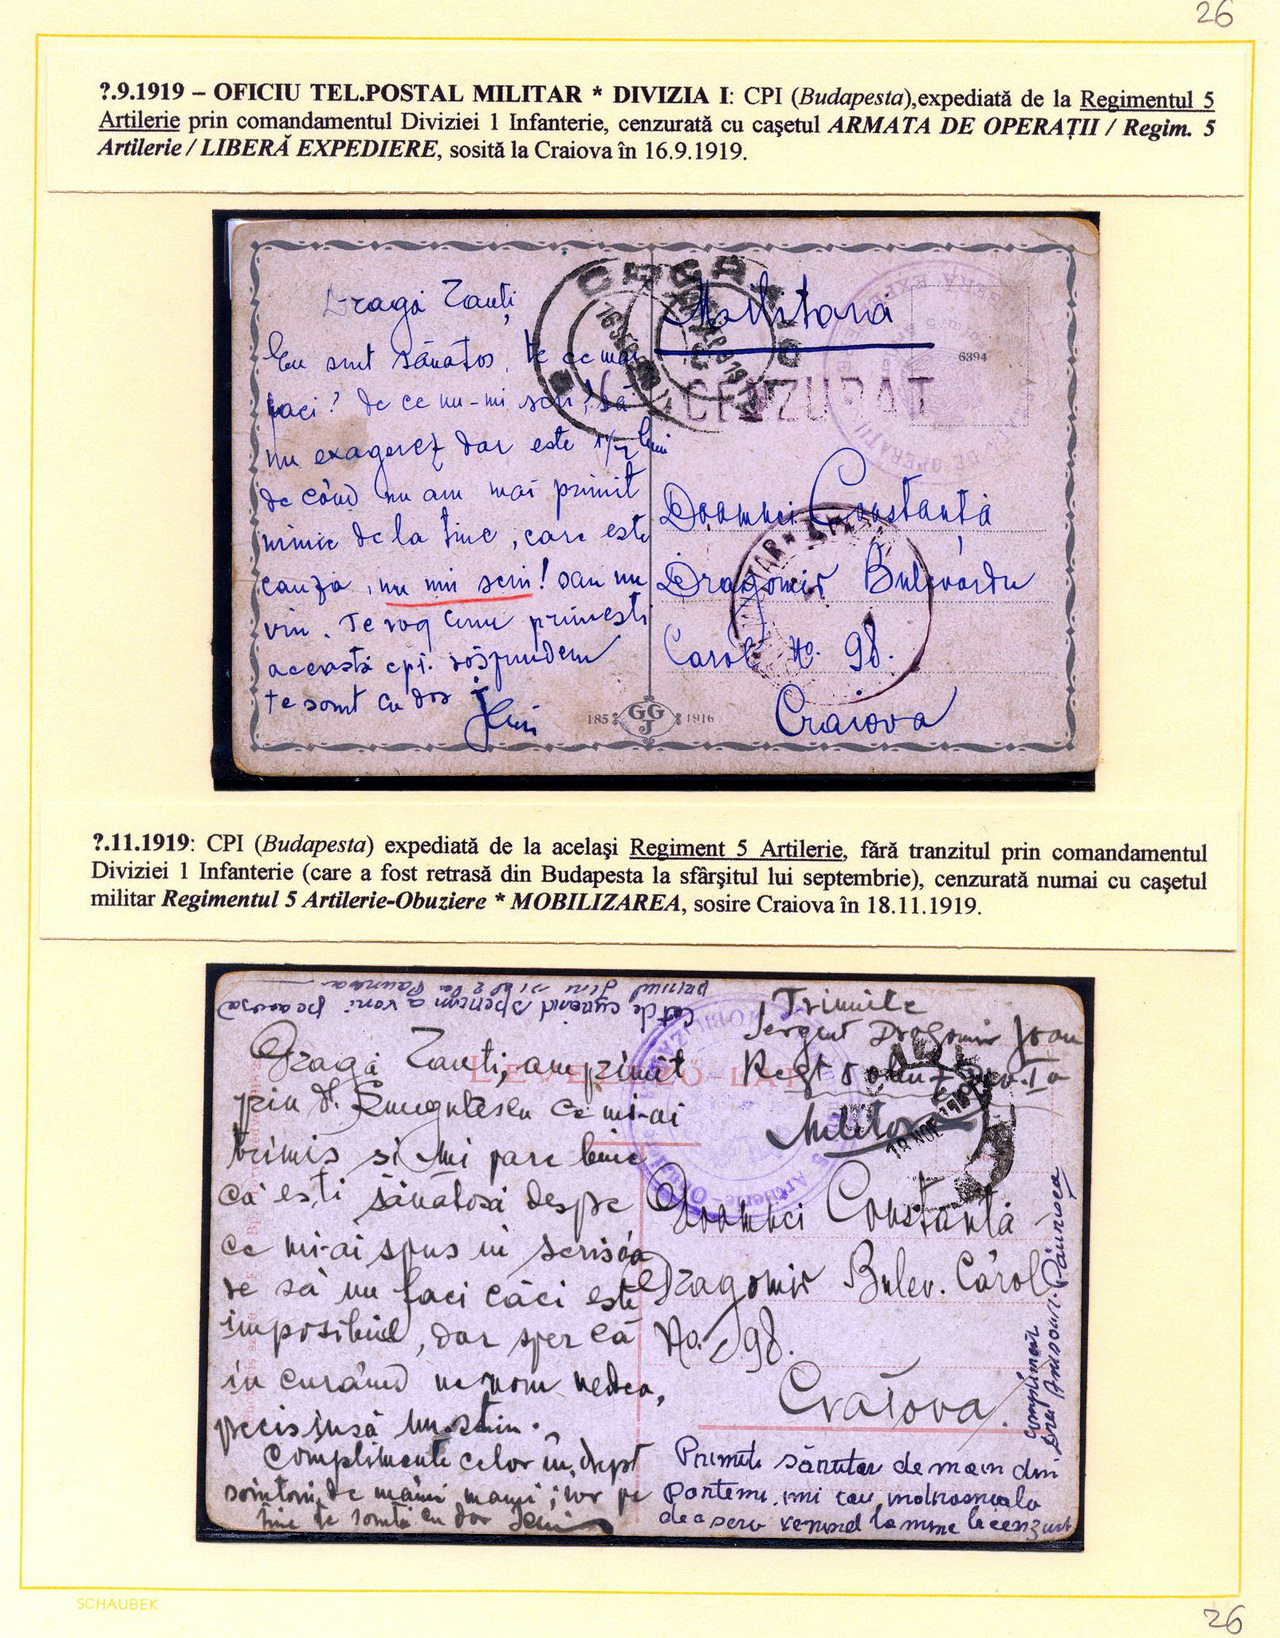 26
?.9.1919 – OFICIU TEL.POSTAL MILITAR * DIVIZIA I: CPI (Budapesta),expediată de la Regimentul 5
Artilerie prin comandamentul Diviziei 1 Infanterie, cenzurată cu caşetul ARMATA DE OPERAŢII / Regim. 5
Artilerie / LIBERĂ EXPEDIERE, sosită la Craiova în 16.9.1919.
Dragă Tanţi,
Eu sunt sănătos, tu ce mai
faci? De ce nu-mi scrii? Să
nu exagerez dar este 1 1/2 luni
de când nu am mai primit
nimic de la tine, care este
cauza, nu mi scrii! sau nu
vin. Te rog cum primeşti
această cpi. răspunde
te sărut cu dor
Jeni
Militară
CENZURAT
6394
CRAIOVA
Doamnei Constanta
Dragomir Bulevardu
Carol No. 98.
Craiova
185 GGJ 1916
?.11.1919: CPI (Budapesta) expediată de la acelaşi Regiment 5 Artilerie, fără tranzitul prin comandamentul
Diviziei 1 Infanterie (care a fost retrasă din Budapesta la sfârşitul lui septembrie), cenzurată numai cu caşetul
militar Regimentul 5 Artilerie-Obuziere * MOBILIZAREA, sosire Craiova în 18.11.1919.
Dragă Tanti, am primit
prin d. ce mi-ai
trimis si îmi pare bine
că esti sănătosă despre
ce mi-ai spus in scrisoa
re să nu faci căci este
imposibil, dar sper că
in curând ne vom vedea,
precis insă nu stiu.
Complimente celor in drept
sărutări de mâini mamii, iar pe
tine te sărută cu dor Jeni
LEVELEZŐ-LAP
Trimite
Sergent Dragomir Ioan
Regt 5
Militar
18 NOE 1919
Doamnei Constantă
Dragomir Bulev. Carol
No. 98.
Craiova
Complimente
Primiti sărutări de mâin din
partemi
de a serv venind la mine la cenzură
SCHAUBEK
26